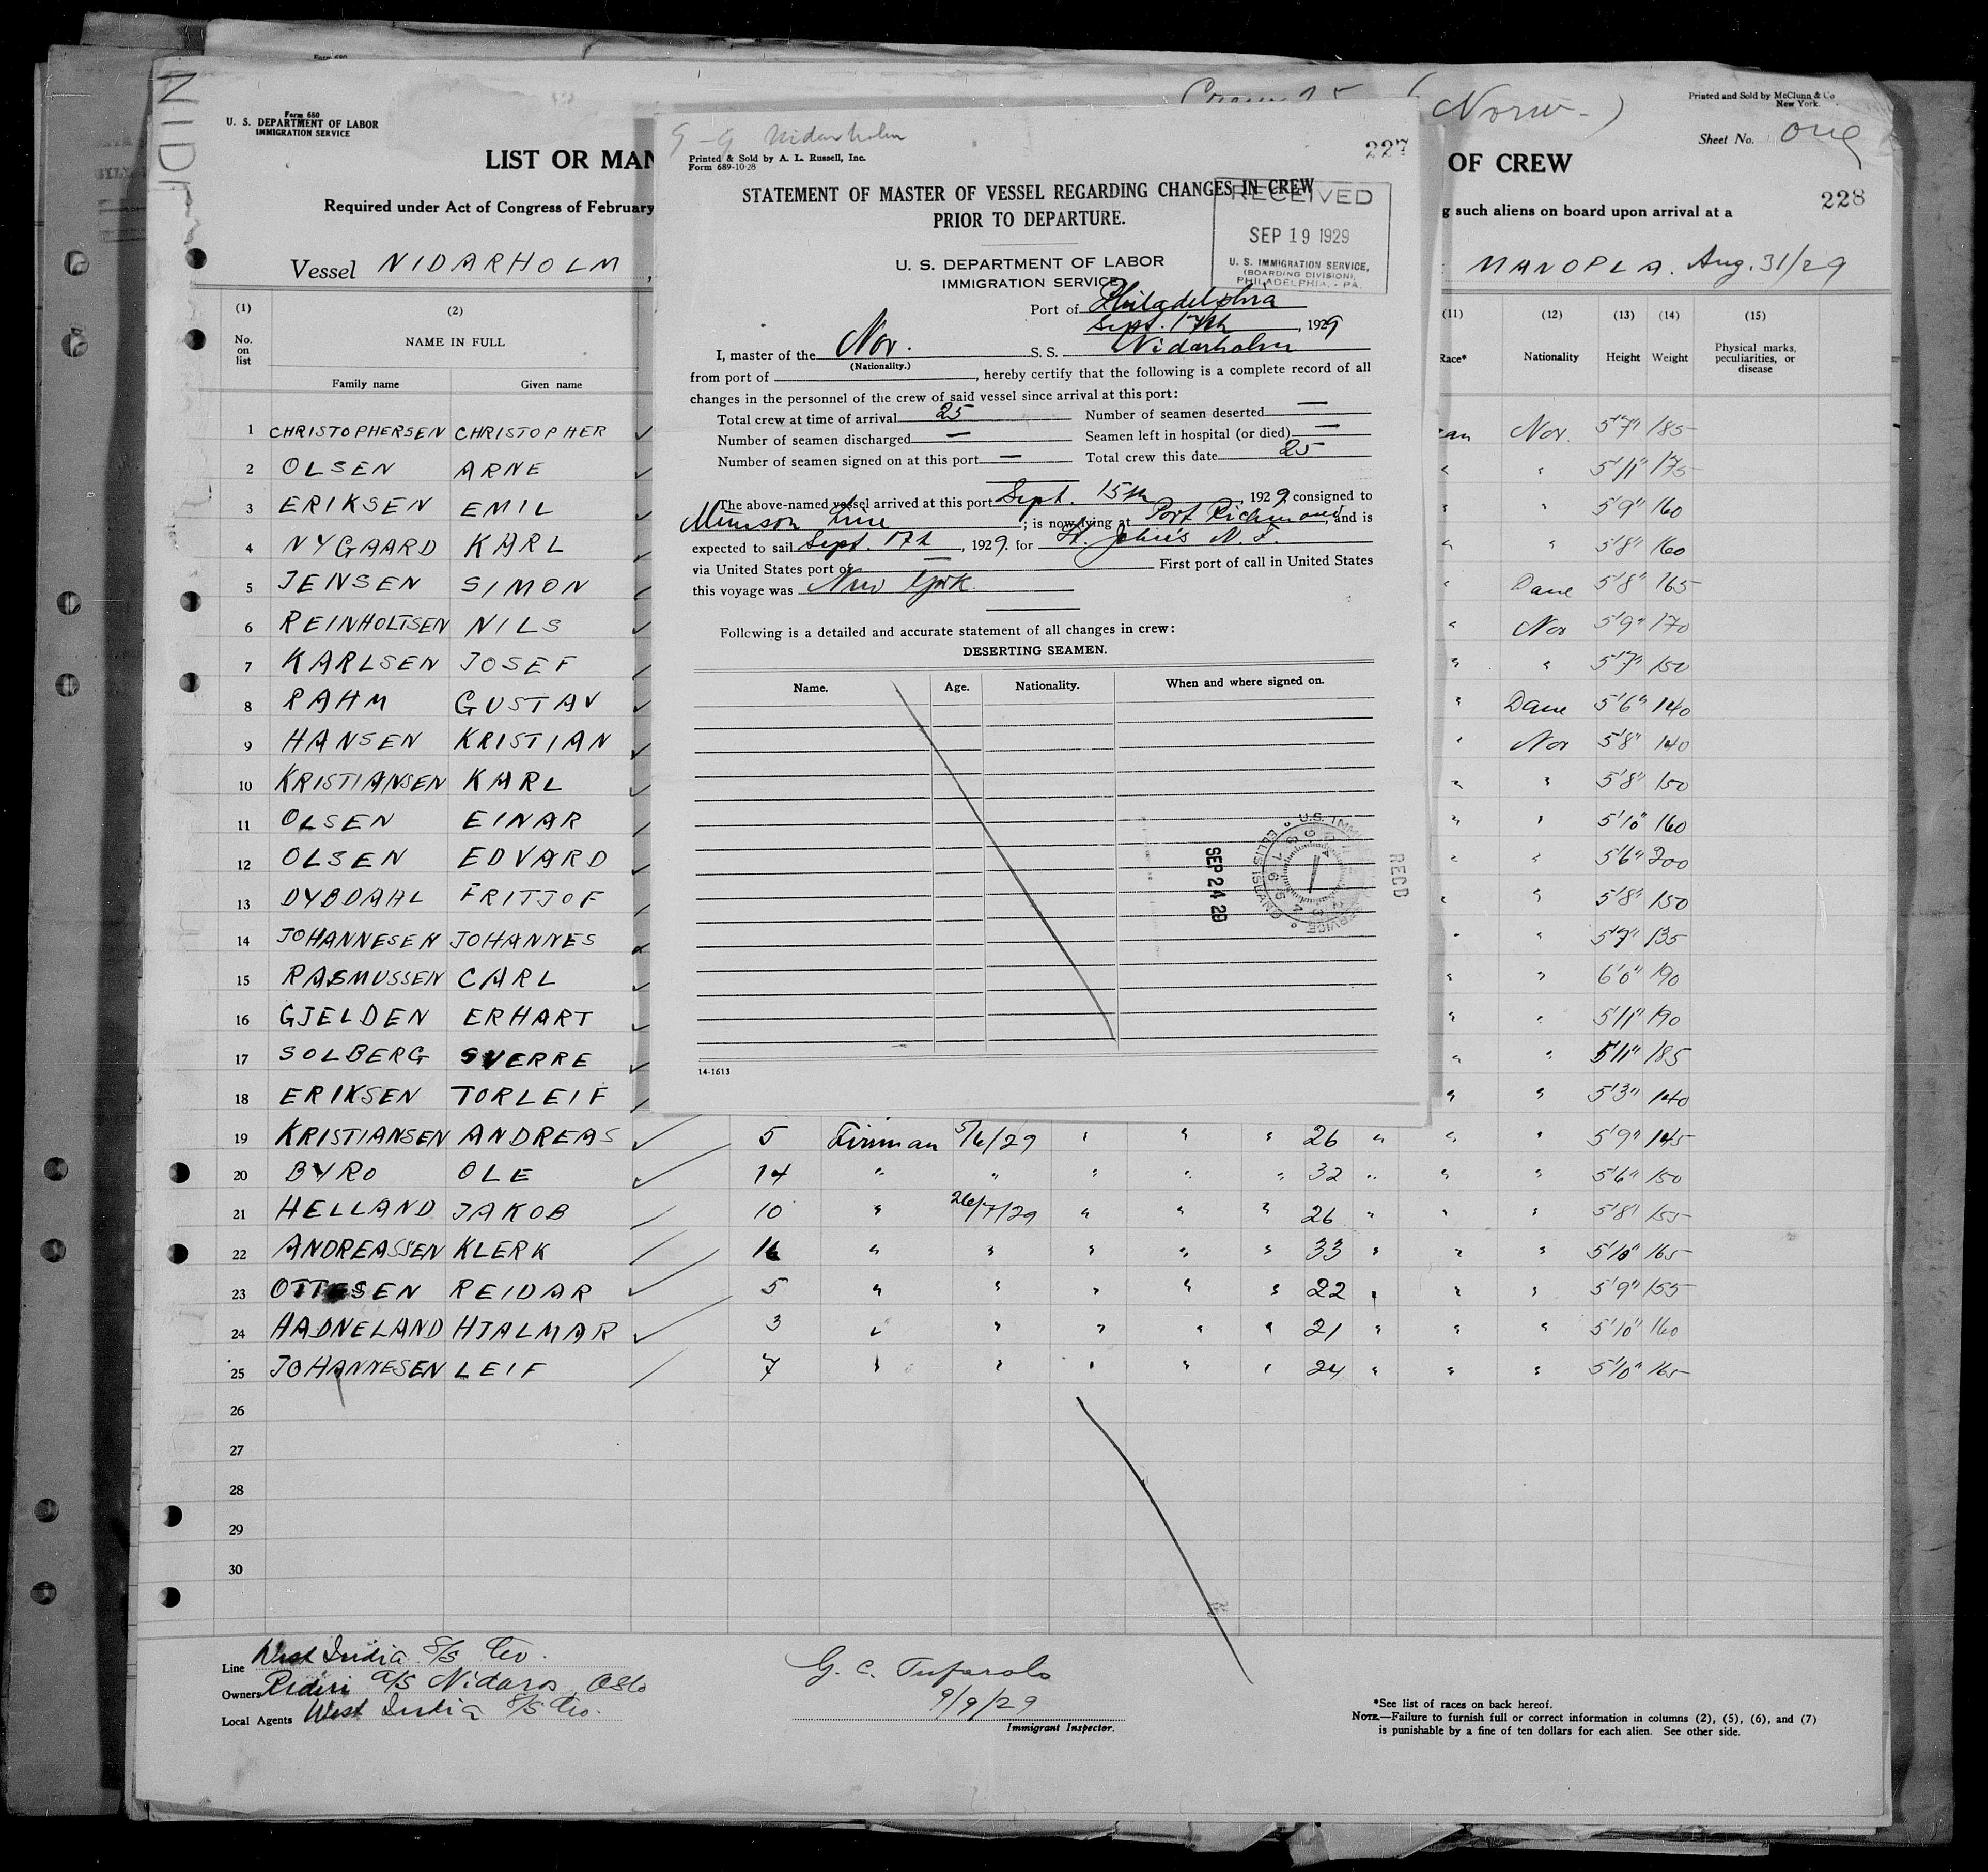 NIDA
Form 680
U. S. DEPARTMENT OF LABOR
IMMIGRATION SERVICE
Crew 25 (Norw-)
Printed and Sold by McClunn & Co
New York.
Sheet No. one
LIST OR MAN
OF CREW
Required under Act of Congress of February
g such aliens on board upon arrival at a
228
Vessel NIDARHOLM,
MANOPLA. Aug. 31/29
Nidarholm
227
Printed & Sold by A. L. Russell, Inc.
Form 689-10-28
STATEMENT OF MASTER OF VESSEL REGARDING CHANGES IN CREW
PRIOR TO DEPARTURE.
RECEIVED
SEP 19 1929
U. S. IMMIGRATION SERVICE,
(BOARDING DIVISION),
PHILADELPHIA, - PA.
U. S. DEPARTMENT OF LABOR
IMMIGRATION SERVICE
Port of Philadelphia
Sept. 17th, 1929
I, master of the Nor. S. S. Nidarholm
(Nationality.)
from port of , hereby certify that the following is a complete record of all
changes in the personnel of the crew of said vessel since arrival at this port:
Total crew at time of arrival 25 Number of seamen deserted —
Number of seamen discharged — Seamen left in hospital (or died) —
Number of seamen signed on at this port — Total crew this date 25
The above-named vessel arrived at this port Sept. 15th, 1929 consigned to
Munson Line ; is now lying at Port Richmond, and is
expected to sail Sept. 17th, 1929. for St. John's N. F.
via United States port of — First port of call in United States
this voyage was New York
Following is a detailed and accurate statement of all changes in crew:
DESERTING SEAMEN.
Name. Age. Nationality. When and where signed on.
SEP 24 29
RECD
14-1613
(1) (2) (11) (12) (13) (14) (15)
No. on list NAME IN FULL Race* Nationality Height Weight Physical marks, peculiarities, or disease
Family name Given name
1 CHRISTOPHERSEN CHRISTOPHER ✓ can Nor. 5'7" 185
2 OLSEN ARNE ✓ " " 5'11" 175
3 ERIKSEN EMIL ✓ " " 5'9" 160
4 NYGAARD KARL ✓ " " 5'8" 160
5 JENSEN SIMON ✓ " Dane 5'8" 165
6 REINHOLTSEN NILS ✓ " Nor 5'9" 170
7 KARLSEN JOSEF ✓ " " 5'7" 150
8 RAHM GUSTAV ✓ " Dane 5'6" 140
9 HANSEN KRISTIAN ✓ " Nor 5'8" 140
10 KRISTIANSEN KARL ✓ " " 5'8" 150
11 OLSEN EINAR ✓ " " 5'10" 160
12 OLSEN EDVARD ✓ " " 5'6" 200
13 DYBDAHL FRITJOF ✓ " " 5'8" 150
14 JOHANNESEN JOHANNES ✓ " " 5'7" 135
15 RASMUSSEN CARL ✓ " " 6'0" 190
16 GJELDEN ERHART ✓ " " 5'11" 190
17 SOLBERG SVERRE ✓ " " 5'11" 185
18 ERIKSEN TORLEIF ✓ " " 5'3" 140
19 KRISTIANSEN ANDREAS ✓ 5 Fireman 5/6/29 " " " 26 " " " 5'9" 145
20 BYRO OLE ✓ 14 " " " " " 32 " " " 5'6" 150
21 HELLAND JAKOB ✓ 10 " 26/7/29 " " " 26 " " " 5'8" 155
22 ANDREASSEN KLERK ✓ 16 " " " " " 33 " " " 5'10" 165
23 OTTESEN REIDAR ✓ 5 " " " " " 22 " " " 5'9" 155
24 HADNELAND HJALMAR ✓ 3 " " " " " 21 " " " 5'10" 160
25 JOHANNESEN LEIF ✓ 7 " " " " " 24 " " " 5'10" 165
26
27
28
29
30
Line West India S/S Co.
Owners Rederi A/S Nidaros, Oslo
Local Agents West India S/S Co.
G. C.
9/9/29
Immigrant Inspector.
*See list of races on back hereof.
NOTE.—Failure to furnish full or correct information in columns (2), (5), (6), and (7)
is punishable by a fine of ten dollars for each alien. See other side.